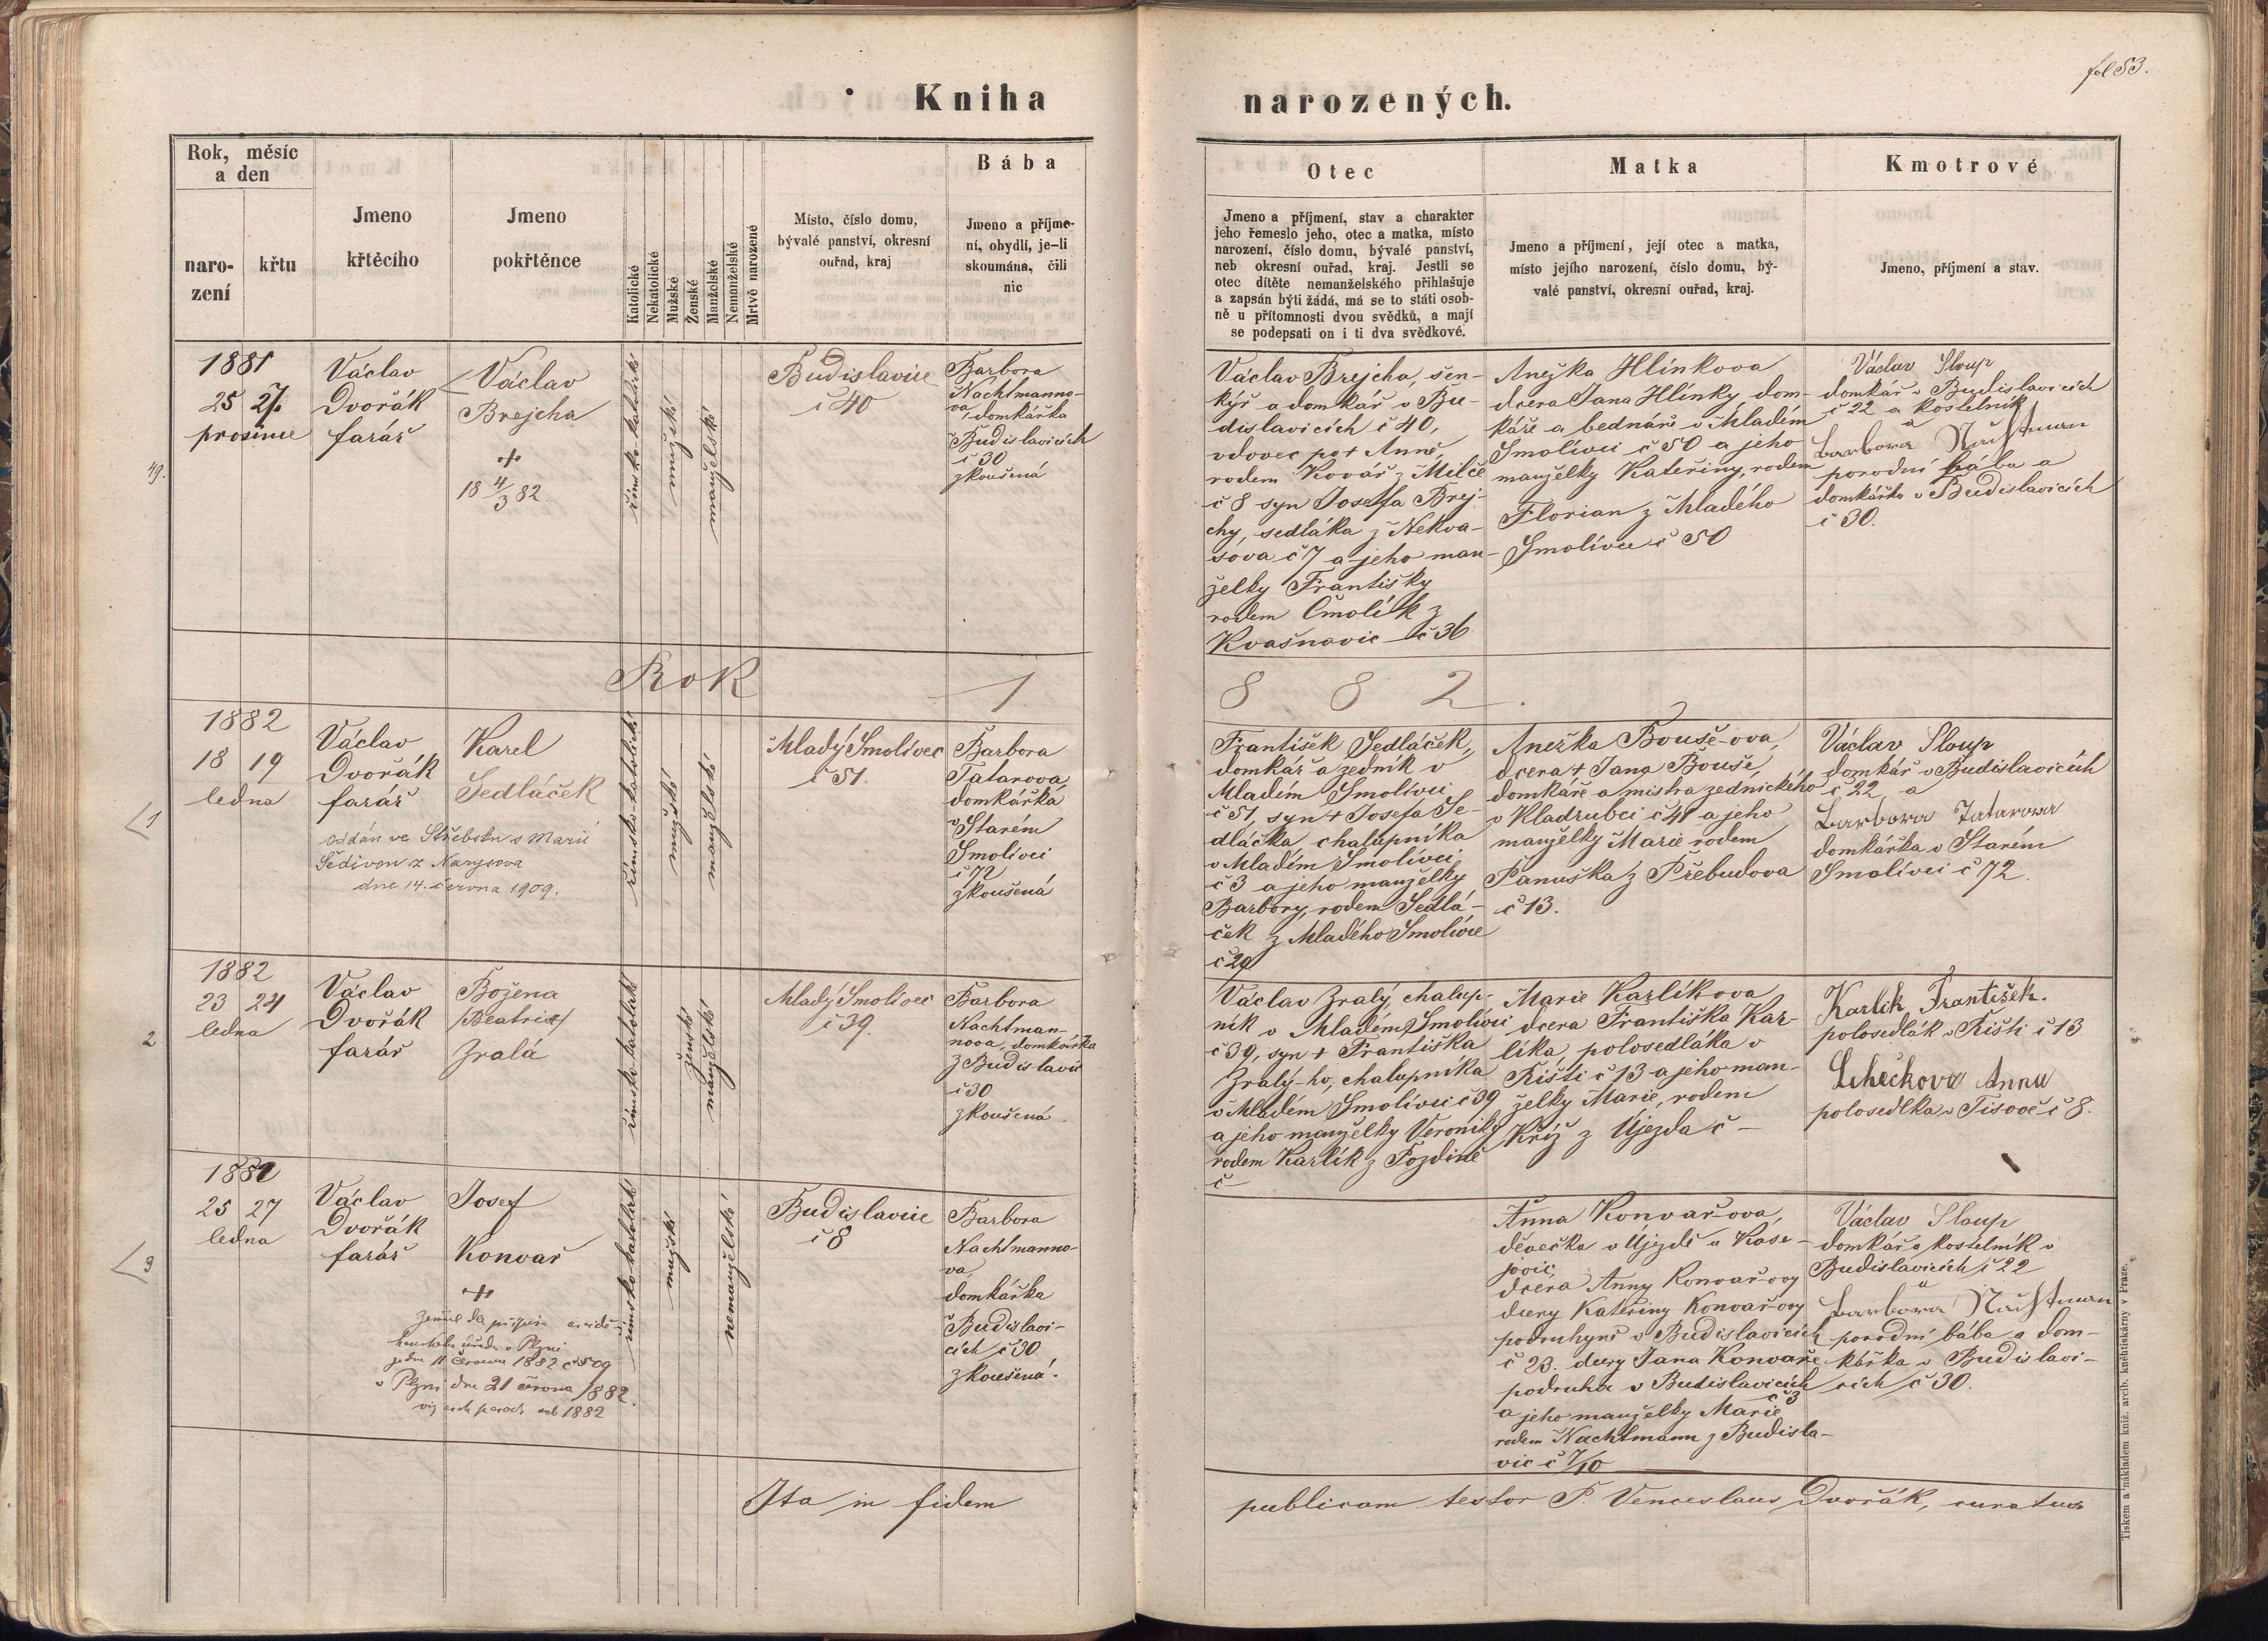 fol 53.
Kniha narozených.
Rok, měsíc
a den
naro-
zení
křtu
Jmeno
křtěcího
Jmeno
pokřtěnce
Katolické
Nekatolické
Mužské
Ženské
Manželské
Nemanželské
Mrtvě narozené
Místo, číslo domu,
bývalé panství, okresní
ouřad, kraj
Bába
Jmeno a příjme-
ní, obydlí, je-li
skoumána, čili
nic
Otec
Jmeno a příjmení, stav a charakter
jeho řemeslo jeho, otec a matka, místo
narození, číslo domu, bývalé panství,
neb okresní ouřad, kraj. Jestli se
otec dítěte nemanželského přihlašuje
a zapsán býti žádá, má se to státi osob-
ně u přítomnosti dvou svědků, a mají
se podepsati on i ti dva svědkové.
Matka
Jmeno a příjmení, její otec a matka,
místo jejího narození, číslo domu, bý-
valé panství, okresní ouřad, kraj.
Kmotrové
Jmeno, příjmení a stav.
49.
1881
25 27
prosince
Václav
Dvořák
farář
Václav
Brejcha
18 4/3 82
římsko katolické
mužské
manželské
Budislavice
č 40
Barbora
Nachtmanno-
va, domkářka
v Budislavicích
č 30
zkoušená
Václav Brejcha, šen-
kýř a domkář v Bu-
dislavicích č 40,
vdovec po + Anně,
rodem Kovář z Milče
č 8 syn Josefa Brej-
chy, sedláka z Nekva-
sova č 7 a jeho man-
želky Františky
rodem Čmolík z
Kvašnovic č 36
Anežka Hlinkova
dcera Jana Hlinky, dom-
káře a bednáře v Mladém
Smolivci č 50 a jeho
manželky Kateřiny, rodem
Florian z Mladého
Smolivce č 50
Václav Sloup
domkář v Budislavicích
č 22 a kostelník
a
Barbora Nachtman
porodní bába a
domkářka v Budislavicích
č 30.
Rok 1 8 8 2.
1
1882
18 19
ledna
Václav
Dvořák
farář
Karel
Sedláček
oddán ve Střebsku s Marií
Šedivou z Narysova
dne 14. června 1909.
římsko katolické
mužské
manželské
Mladý Smolivec
č 51.
Barbora
Tatarova,
domkářka
v Starém
Smolivci
č 72
zkoušená
František Sedláček,
domkář a zedník v
Mladém Smolivci
č 51, syn + Josefa Se-
dláčka, chalupníka
v Mladém Smolivci
č 3 a jeho manželky
Barbory, rodem Sedlá-
ček z Mladého Smolivce
č 29
Anežka Bouše-ova,
dcera + Jana Bouše,
domkáře a mistra zednického
v Kladrubci č 41 a jeho
manželky Marie rodem
Panuška z Předbudova
č 13.
Václav Sloup
domkář v Budislavicích
č 22 a
Barbora Tatarowa
domkářka v Starém
Smolivci č 72.
2
1882
23 24
ledna
Václav
Dvořák
farář
Božena
/Beatrix/
Zralá
římsko katolické
ženské
manželské
Mladý Smolivec
č 39.
Barbora
Nachtman-
nova, domkářka
z Budislavic
č 30
zkoušená
Václav Zralý, chalup-
ník v Mladém Smolivci
č 39, syn + Františka
Zralý-ho, chalupníka
v Mladém Smolivci č 39
a jeho manželky Veroniky
rodem Karlík z Pozdině
č —
Marie Karlíkova
dcera Františka Kar-
líka, polosedláka v
Řišti č 13 a jeho man-
želky Marie, rodem
Kříž z Újezda č —
Karlik František.
polosedlák v Řišti č 13
Lehečkova Anna
polosedlka v Tisově č 8.
3
1882
25 27
ledna
Václav
Dvořák
farář
Josef
Konvař
v Plzni
11 června 1882 č 509
v Plzni dne 21 června 1882.
1882
římsko katolické
mužské
nemanželské
Budislavice
č 8
Barbora
Nachtmanno-
va,
domkářka
v Budislavi-
cích č 30
zkoušená.
Anna Konvař-ova,
děvečka v Újezdě u Kase-
jovic,
dcera Anny Konvař-ovy
dcery Kateřiny Konvař-ovy
podruhyně v Budislavicích
č 23. dcery Jana Konvaře
podruha v Budislavicích
č 3
a jeho manželky Marie
rodem Nachtmann z Budisla-
vic č 7/10
Václav Sloup
domkář a kostelník v
Budislavicích č 22
a
Barbora Nachtman
porodní bába a dom-
kářka v Budislavi-
cích č 30.
Ita in fidem publicam testor P. Venceslaus Dvořák, curatus
Tiskem a nákladem kníž. arcib. knihtiskárny v Praze.